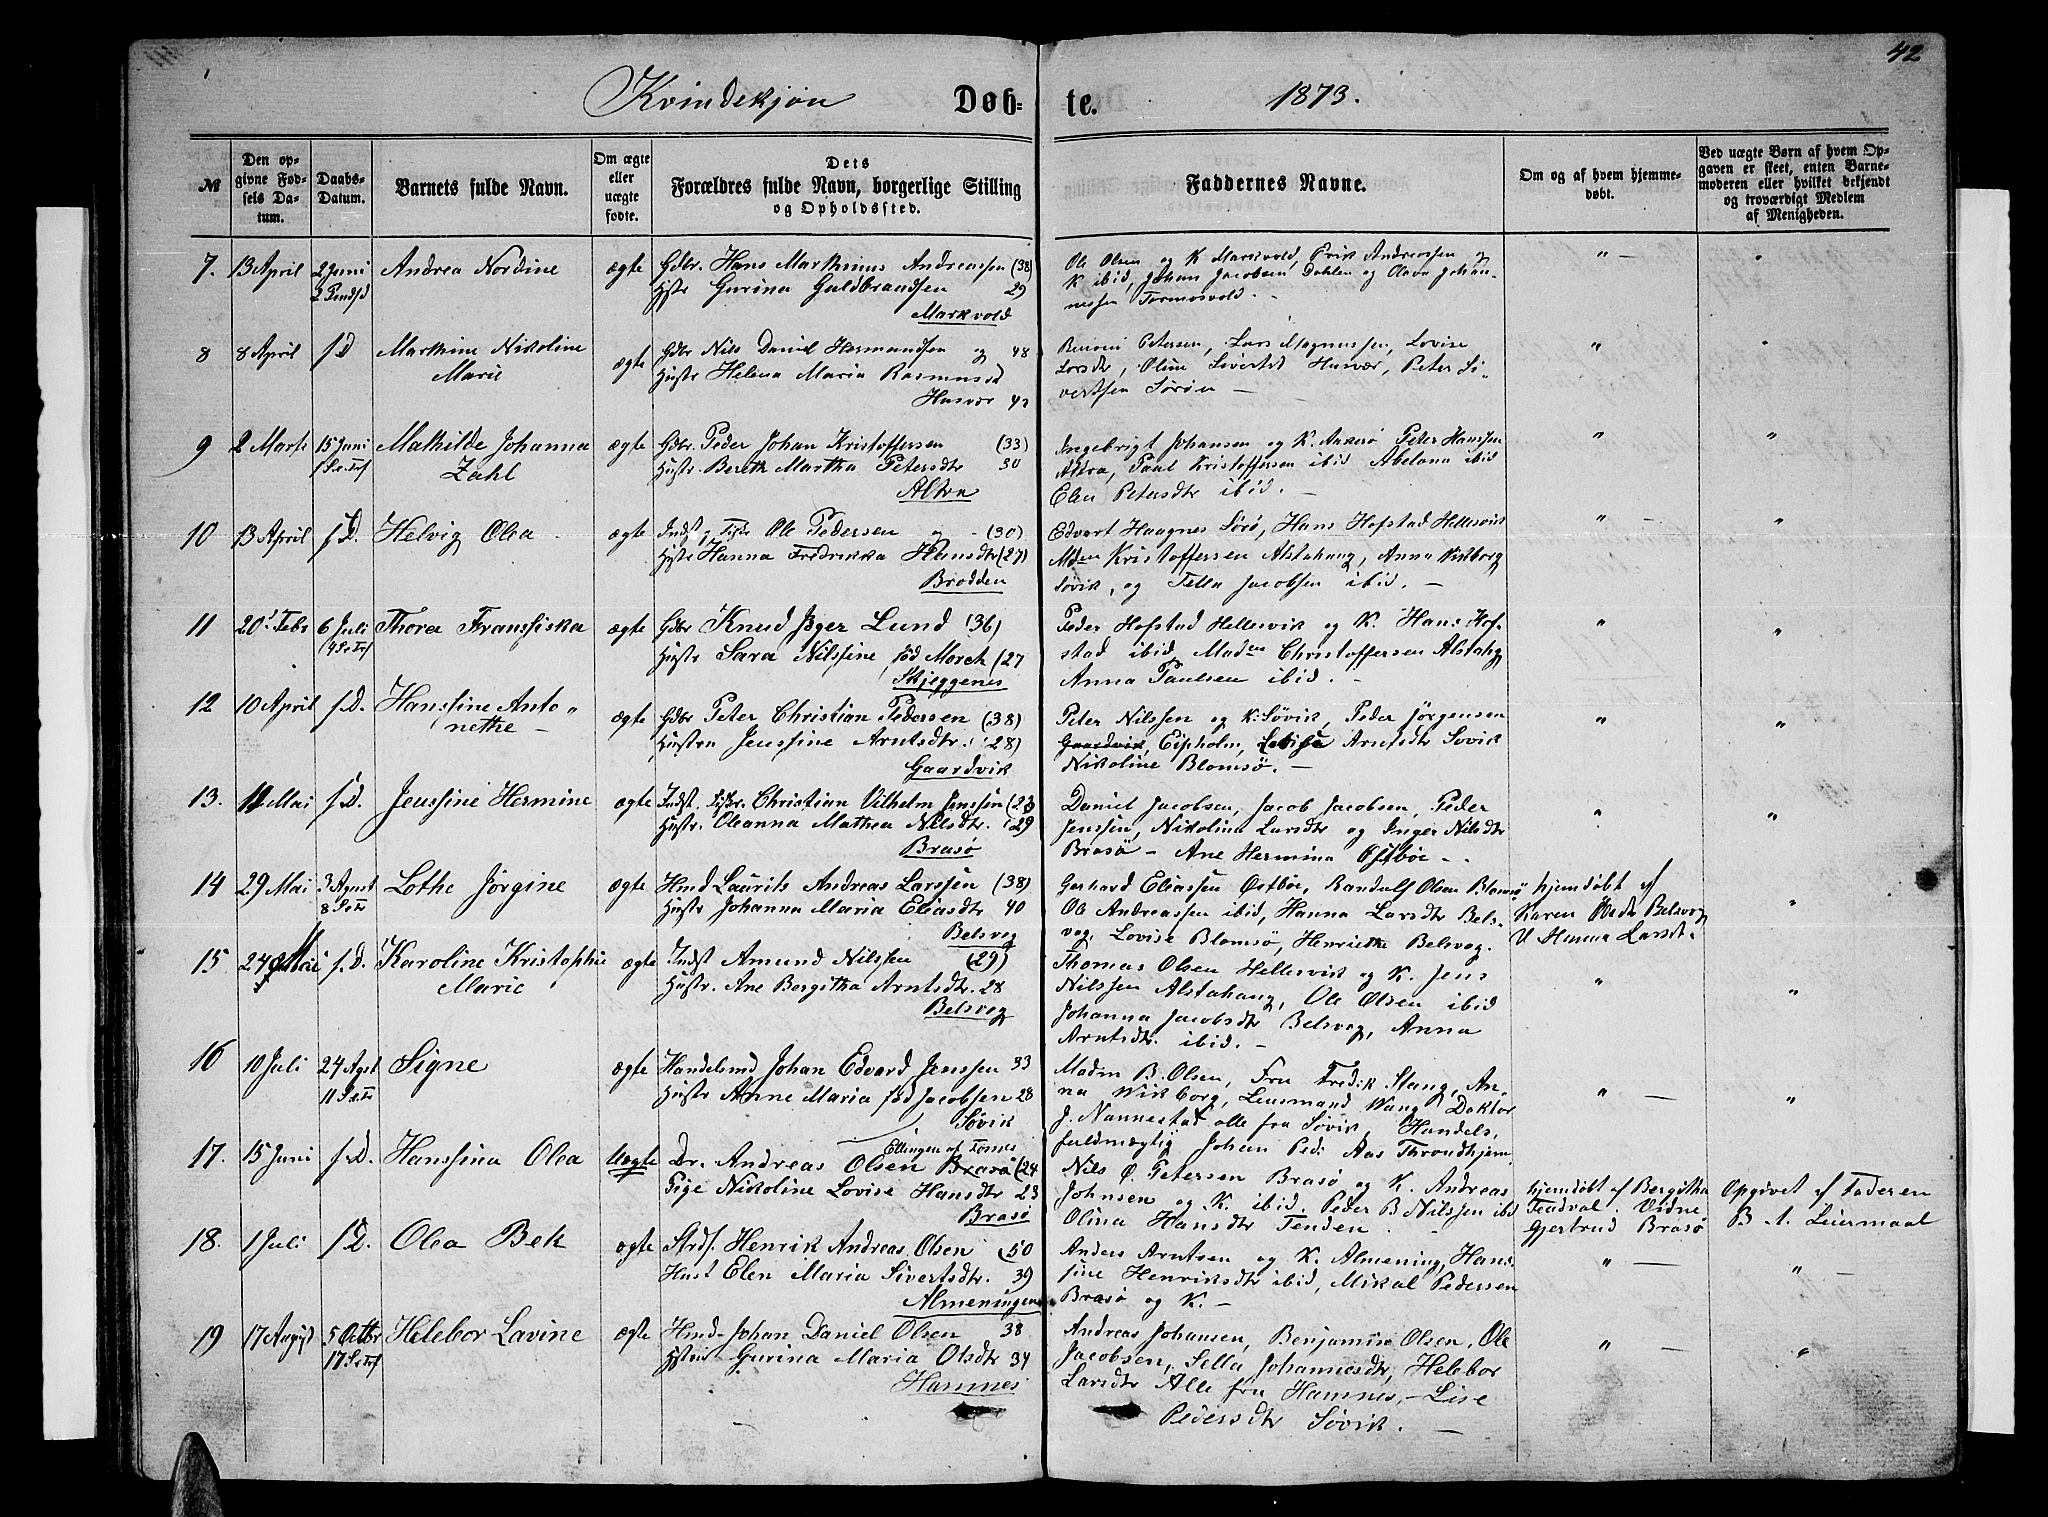 42
Kvindekjøn Døb-te. 1873.
№
Den opgivne Fødsels Datum.
Daabs-Datum.
Barnets fulde Navn.
Om ægte eller uægte fødte.
Dets Forældres fulde Navn, borgerlige Stilling og Opholdssted.
Faddernes Navne.
Om og af hvem hjemmedøbt.
Ved uægte Børn af hvem Opgaven er skeet, enten Barnemoderen eller hvilket bekjendt og troværdigt Medlem af Menigheden.
7. 13 April 2 Juni Andrea Nordine ægte Gdbr. Hans Marthinus Andreassen (38)
2 Pindsd Hstr Gurina Guldbrandsen 29
Markvold
Ole Olsen og K Markvold, Erik Andreassen og
K ibid, Johan Jacobsen Dahlen og Olava Johan-
nessen Tormosvold. -
" - "
8 8 April s.D Marthine Nikoline ægte Gdbr Nils Daniel Hermandsen og 48
Marie Hustr Helena Maria Rasmusd
Husvær 43
Petersen, Lars Magnussen, Lovise
Larsdtr, Oline Sivertsd Husvær, Peter Si-
vertsen Sørøen -
" "
9 2 Marts 15 Juni Mathilde Johanna ægte Gdbr. Peder Johan Kristoffersen (33)
Zahl Hustr. Bereth Martha Petersdtr 30
Altra
Ingebrigt Johansen og K. Aakerø Peter Hanssen
Altra, Paul Kristoffersen ibid Abelona ibid
Elen Petersdtr ibid. -
" "
10 13 April s.D. Helvig Olea ægte Indst, Fisker Ole Pedersen og - (30)
Hstr Hanna Fredrikka Hansdtr (27)
Brodden
Edvart Haagnes Sørø, Hans Hofstad Hellesvik
Mden Kristoffersen Alstahaug, Anna Wikborg
Søvik, og Tella Jacobsen ibid. -
" - "
11 20 Febr 6 Juli Thora Franssiska ægte Gdbr Knud Jæger Lund (36)
Hustr Sara Nilssine fød Morch (27
Skjeggenes
Peder Hofstad Hellesvik og K. Hans Hof-
stad ibid, Maden Christoffersen Alstahg
Anna Paulsen ibid. -
" "
12 10 April s.D. Hanssine Anto- ægte Gdbr Peter Christian Pedersen (38)
nethe - Hustru Jenssine Arntsdtr. (28)
Gaardvik
Peter Nilssen og K. Søvik, Peder Jörgensen
Gaardvik, Eipholm, Lovise Arntsdtr Sovik
Nikoline Blomsö. -
" "
13. 11 Mai s.D. Jenssine Hermine ægte Indst. Fisker. Christian Vilhelm Jenssen (23
Hustr. Oleanna Mathea Nilsdtr. (29
Brasø
Daniel Jacobsen, Jacob Jacobsen, Peder
Jenssen, Nikolina Larsdtr og Inger Nilsdtr
Brasö - Ane Hermina Østbøe - -
" "
14 29 Mai 3 August Lothe Jørgine ægte Hmd Laurits Andreas Larssen (38)
8 S e Tr Hustr Johanna Maria Eliasdtr 40
Belsveg
Gerhard Eliassen Østbøe, Randulf Olsen Blomsö
Ole Andreassen ibid, Hanna Larsdtr Bels-
veg, Lovise Blomsø, Henriette Belsveg.
hjemdøbt af
Karen Belsveg
V Hanna Larsdtr.
"
15 24 Mai s.D. Karoline Kristophie ægte Indst Amund Nilssen (29)
Marie Hustr. Ane Bergitha Arntsdtr. 28
Belsveg
Thomas Olsen Hellesvik og K. Jens
Nilssen Alstahaug, Ole Olsen ibid
Johanna Jacobsdtr Belsveg, Anna
Arntsdtr. ibid. -
" "
16 10 Juli 24 Agst Signe ægte Handelsmd Johan Edvard Jenssen 33
11 S e Tr Hustr Anne Maria fød Jacobsen 28
Søvik
Madm B. Olsen, Fru Fredrik Stang, An-
na Wikborg, Lensmand Wang, Doktor
J. Nannestad alle fra Søvik, Handels-
fuldmægtig Johan Ped. Aas Throndhjem
" - "
17. 15 Juni s.D. Hanssina Olea Uægte Dr. Andreas Olsen Brasø (24
Ellingen af Tornes
Pige Nikoline Lovise Hansdtr 23
Brasø
Nils Ø. Petersen Brasø og K. Andreas
Johnsen og K. ibid. Peder B Nilssen ibid
Olina Hansdtr Tenden -
hjemdøbt af Bergitha
Tendval. Vidne
Gjertrud Brasø
Opgivet af Faderen
B. A. Leiermaal
18. 1 Juli s.D. Olea Bek ægte Strds. Henrik Andreas Olsen (50
Hust Elen Maria Sivertsdtr. 39
Almeningen
Anders Arntsen og K. Almening, Hans-
sine Henriksdtr ibid, Mikal Pedersen
Brasø og K. -
" - " -
19 17 August 5 Octbr Helebor Lavine ægte Hmd. Johan Daniel Olsen 38
Hstru Gurina Maria Olsdtr 34
Hamnes
Andreas Johansen, Benjamin Olsen, Ole
Jacobsen, Sella Johannesdtr, Helebor
Larsdtr Alle fra Hamnes, - Lise
Pedersdtr Søvik. -
" - "